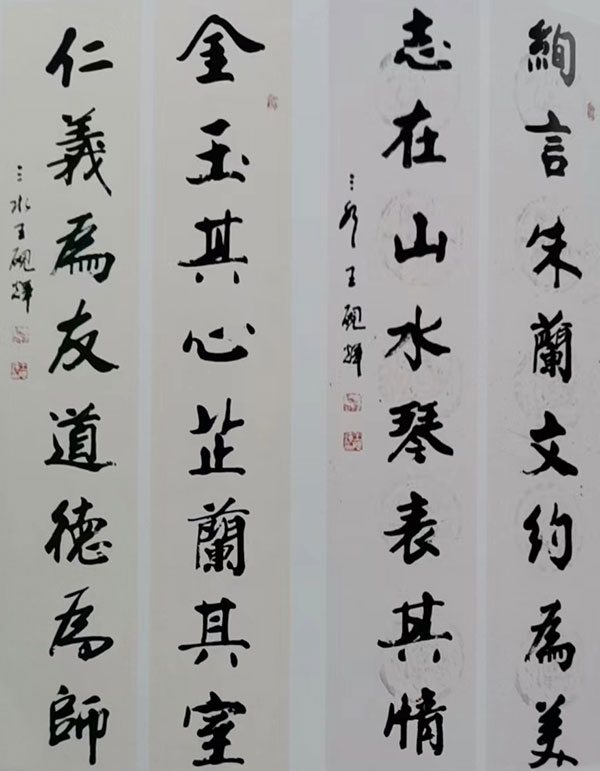 絢言朱蘭文約為美
志在山水琴表其情
三水王硯輝
金玉其心芷蘭其室
仁義為友道德為師
三水王硯輝